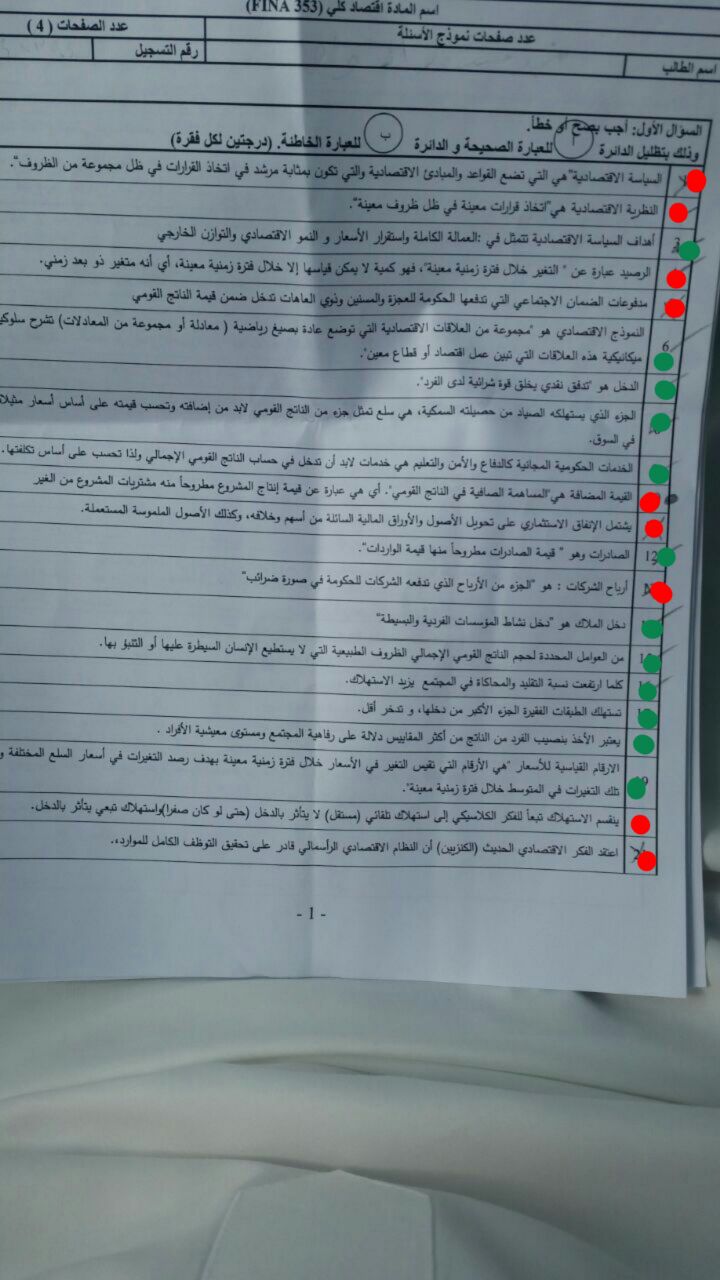 اسم المادة اقتصاد كلي (FINA 353)
عدد صفحات نموذج الأسئلة
عدد الصفحات ( 4 )
اسم الطالب
رقم التسجيل
السؤال الأول: أجب بصح أو خطأ.
وذلك بتظليل الدائرة أ للعبارة الصحيحة و الدائرة ب للعبارة الخاطئة. (درجتين لكل فقرة)
السياسة الاقتصادية"هي التي تضع القواعد والمبادئ الاقتصادية والتي تكون بمثابة مرشد في اتخاذ القرارات في ظل مجموعة من الظروف".
النظرية الاقتصادية هي"اتخاذ قرارات معينة في ظل ظروف معينة".
أهداف السياسة الاقتصادية تتمثل في :العمالة الكاملة واستقرار الأسعار و النمو الاقتصادي والتوازن الخارجي
الرصيد عبارة عن " التغير خلال فترة زمنية معينة"، فهو كمية لا يمكن قياسها إلا خلال فترة زمنية معينة، أي أنه متغير ذو بعد زمني.
مدفوعات الضمان الاجتماعي التي تدفعها الحكومة للعجزة والمسنين وذوي العاهات تدخل ضمن قيمة الناتج القومي
6 النموذج الاقتصادي هو "مجموعة من العلاقات الاقتصادية التي توضع عادة بصيغ رياضية ( معادلة أو مجموعة من المعادلات) تشرح سلوكية
ميكانيكية هذه العلاقات التي تبين عمل اقتصاد أو قطاع معين".
الدخل هو "تدفق نقدي يخلق قوة شرائية لدى الفرد".
الجزء الذي يستهلكه الصياد من حصيلته السمكية، هي سلع تمثل جزء من الناتج القومي لابد من إضافته وتحسب قيمته على أساس أسعار مثيلا
في السوق.
الخدمات الحكومية المجانية كالدفاع والأمن والتعليم هي خدمات لابد أن تدخل في حساب الناتج القومي الإجمالي ولذا تحسب على أساس تكلفتها.
القيمة المضافة هي"المساهمة الصافية في الناتج القومي". أي هي عبارة عن قيمة إنتاج المشروع مطروحاً منه مشتريات المشروع من الغير
يشتمل الإنفاق الاستثماري على تحويل الأصول والأوراق المالية السائلة من أسهم وخلافه، وكذلك الأصول الملموسة المستعملة.
12 الصادرات وهو " قيمة الصادرات مطروحاً منها قيمة الواردات".
أرباح الشركات : هو "الجزء من الأرباح الذي تدفعه الشركات للحكومة في صورة ضرائب"
دخل الملاك هو "دخل نشاط المؤسسات الفردية والبسيطة"
من العوامل المحددة لحجم الناتج القومي الإجمالي الظروف الطبيعية التي لا يستطيع الإنسان السيطرة عليها أو التنبؤ بها.
كلما ارتفعت نسبة التقليد والمحاكاة في المجتمع يزيد الاستهلاك.
تستهلك الطبقات الفقيرة الجزء الأكبر من دخلها، و تدخر أقل.
يعتبر الأخذ بنصيب الفرد من الناتج من أكثر المقاييس دلالة على رفاهية المجتمع ومستوى معيشية الأفراد .
الارقام القياسية للأسعار "هي الأرقام التي تقيس التغير في الأسعار خلال فترة زمنية معينة بهدف رصد التغيرات في أسعار السلع المختلفة و
تلك التغيرات في المتوسط خلال فترة زمنية معينة".
ينقسم الاستهلاك تبعاً للفكر الكلاسيكي إلى استهلاك تلقائي (مستقل) لا يتأثر بالدخل (حتى لو كان صفرا)واستهلاك تبعي يتأثر بالدخل.
اعتقد الفكر الاقتصادي الحديث (الكنزيين) أن النظام الاقتصادي الرأسمالي قادر على تحقيق التوظف الكامل للموارد».
- 1 -